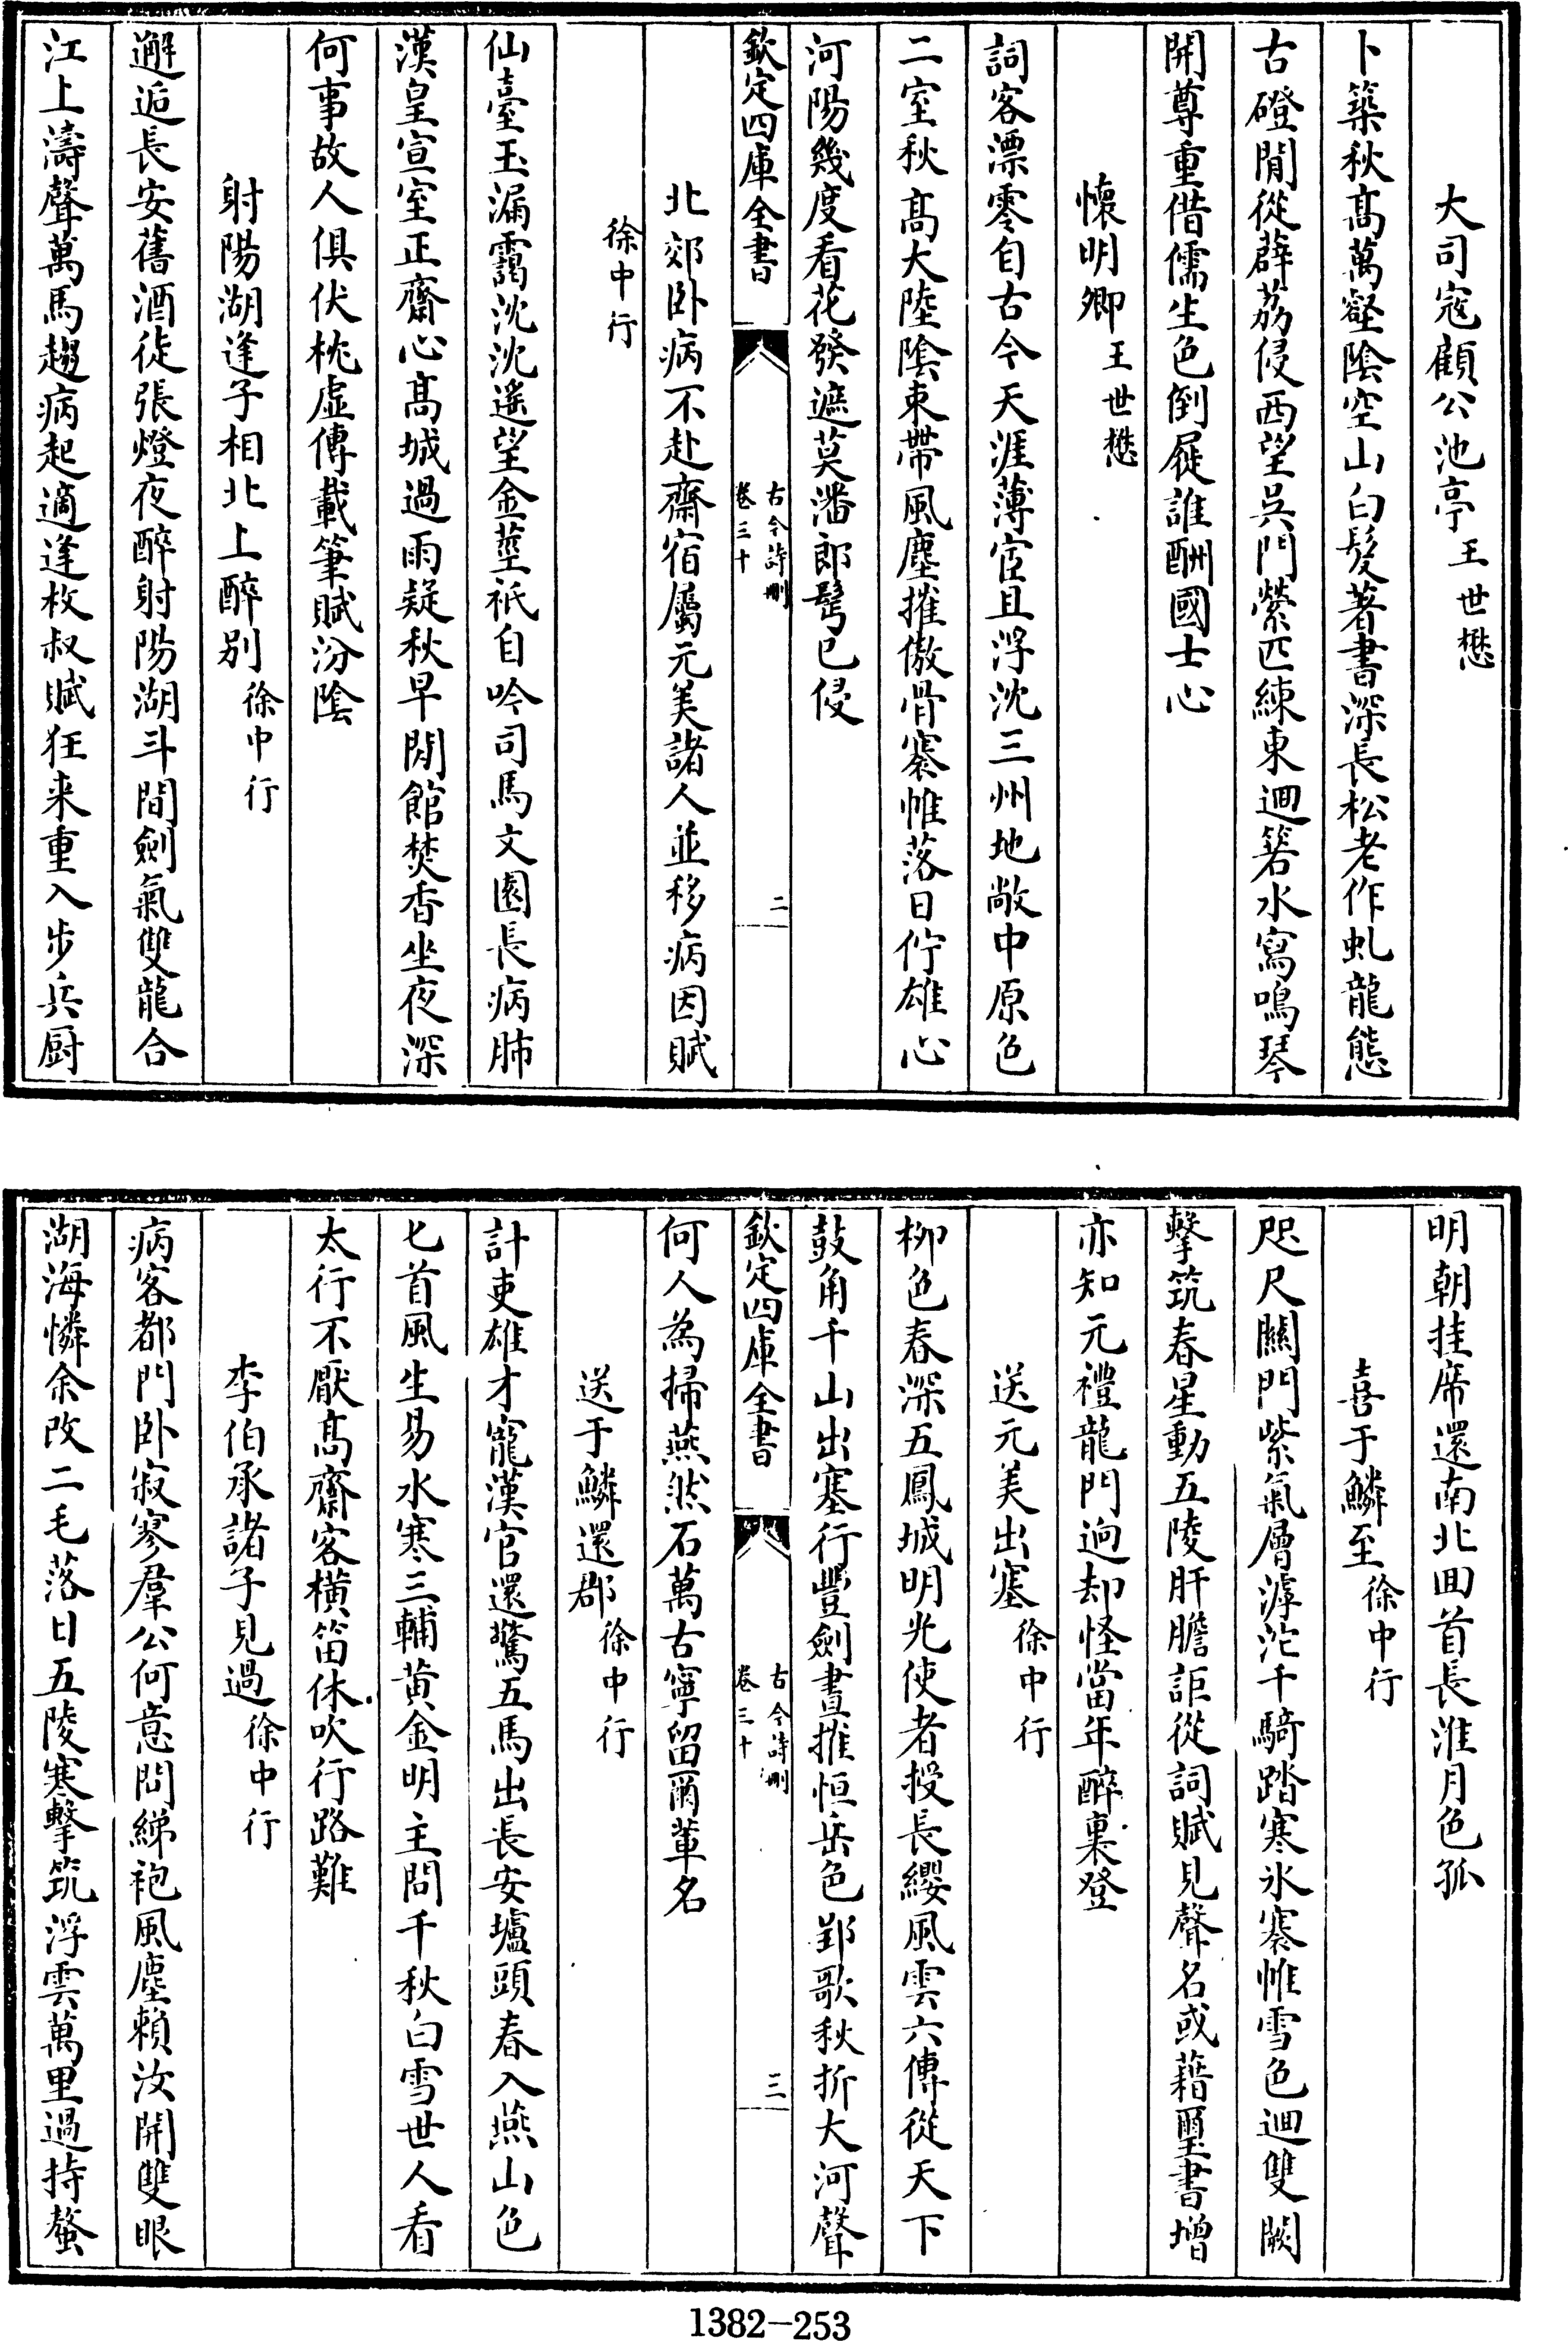 大司寇顧公池亭王世懋
卜築秋髙萬壑隂空山白髮著書深長松老作虬龍態
古磴閒從薜荔侵西望吳門縈匹練東迴箬水寫鳴琴
開尊重借儒生色倒屣誰酬國士心
懷明卿王世懋
詞客漂零自古今天涯薄宦且浮沈三州地敞中原色
二室秋髙大陸隂束帶風塵摧傲骨褰帷落日佇雄心
河陽幾度看花發遮莫潘郎鬂已侵
欽定四庫全書
古今詩刪
卷三十
二
北郊卧病不赴齋宿屬元美諸人並移病因賦
徐中行
仙臺玉漏靄沈沈遥望金莖祇自吟司馬文園長病肺
漢皇宣室正齋心髙城過雨疑秋早閒館焚香坐夜深
何事故人俱伏枕虛傳載筆賦汾隂
射陽湖逢子相北上醉别徐中行
邂逅長安舊酒徒張燈夜醉射陽湖斗間劍氣雙龍合
江上濤聲萬馬趨病起適逢枚叔賦狂来重入步兵厨
明朝挂席還南北回首長淮月色孤
喜于鱗至徐中行
咫尺關門紫氣層滹沱千騎踏寒氷褰帷雪色迴雙闕
擊筑春星動五陵肝膽詎從詞賦見聲名或藉璽書增
亦知元禮龍門逈却怪當年醉裏登
送元美出塞徐中行
柳色春深五鳳城明光使者授長纓風雲六傳從天下
鼓角千山出塞行豐劍晝摧恒岳色郢歌秋折大河聲
欽定四庫全書
古今詩刪
卷三十
三
何人為掃燕然石萬古寧留爾軰名
送于鱗還郡徐中行
計吏雄才寵漢官還驚五馬出長安壚頭春入燕山色
匕首風生易水寒三輔黄金明主問千秋白雪世人看
太行不厭髙齋客横笛休吹行路難
李伯承諸子見過徐中行
病客都門卧寂寥羣公何意問綈袍風塵賴汝開雙眼
湖海憐余改二毛落日五陵寒擊筑浮雲萬里過持螯
1382-253